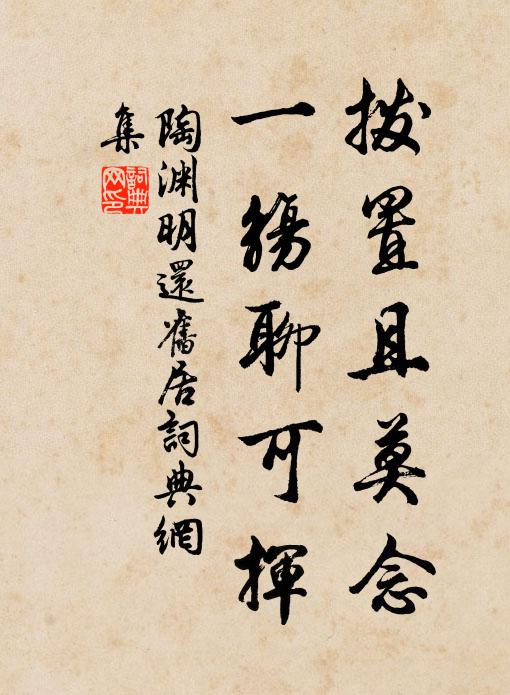 拨置且莫念
一觴聊可揮
陶渊明還舊居詞典網
集
詞典
网印